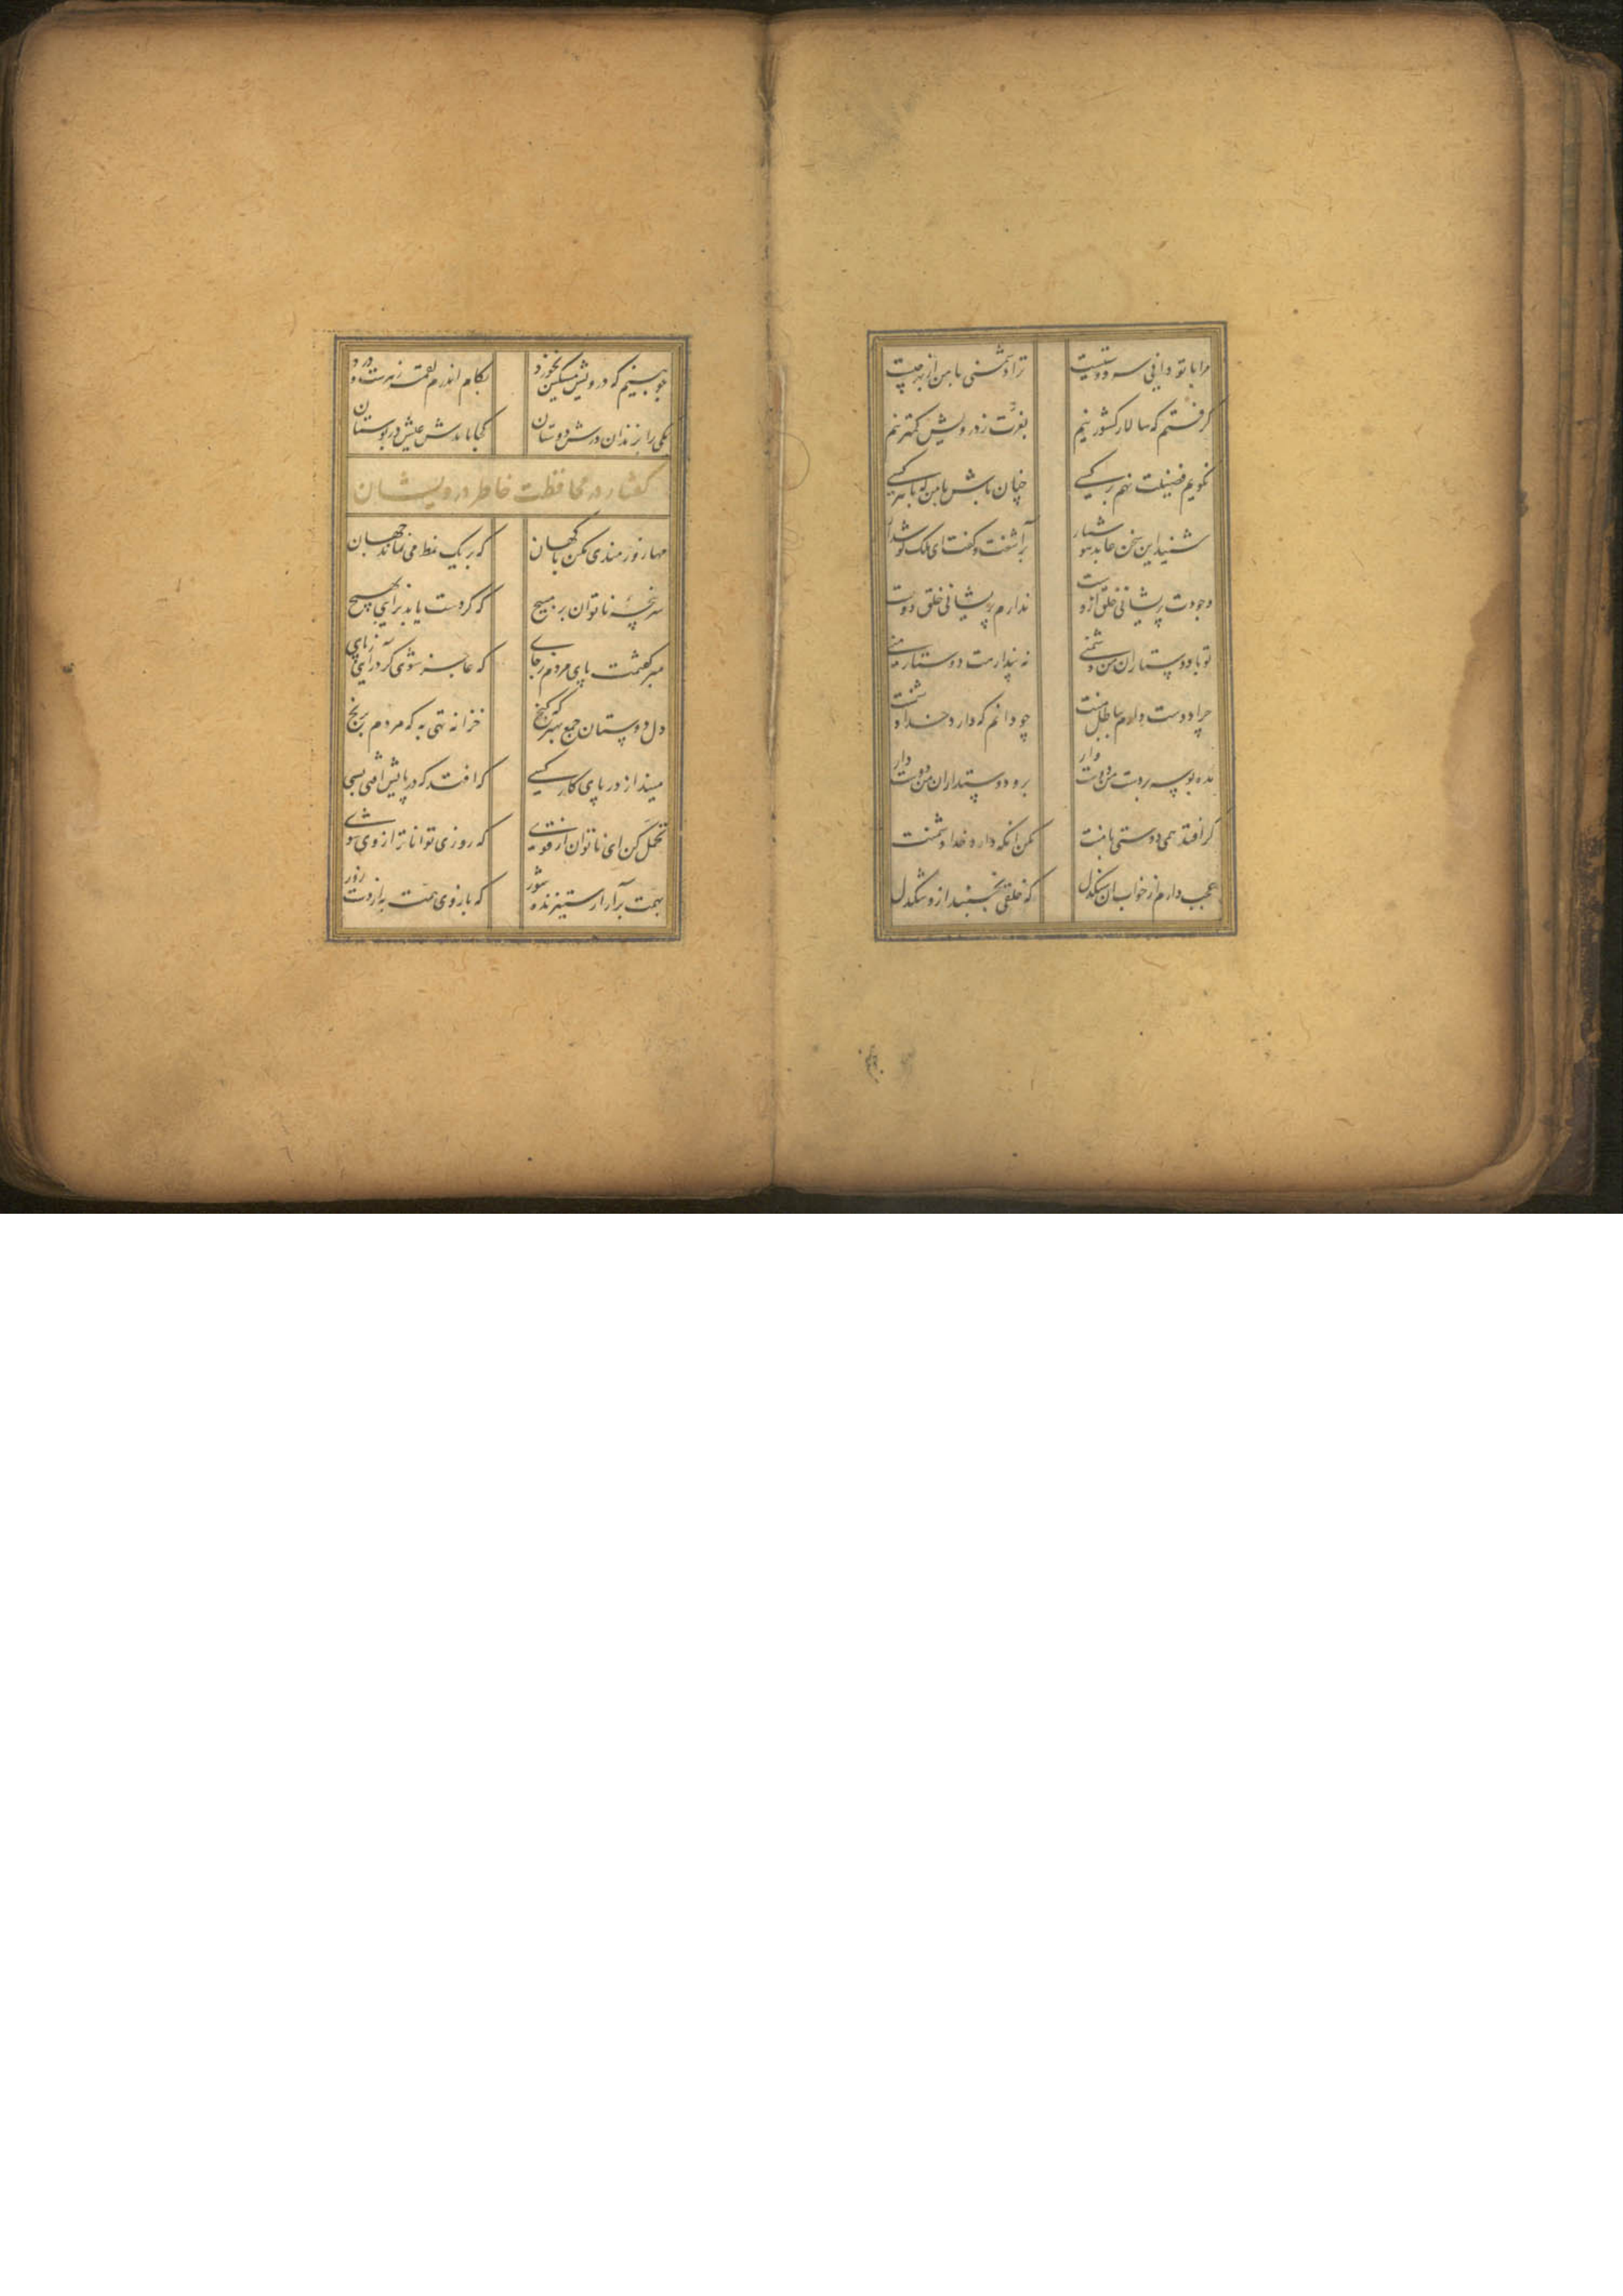 مرا با تو دانی سر دوستیست ترا دشمنی با من از بهر چیست
گرفتم که سالار کشور نیم بعزت ز درویش کمتر نیم
نگویم فضیلت نهم بر کسی چنان باش با من که با هر کسی
شنید این سخن عابد هوشیار برآشفت و گفت ای ملک گوش دار
وجودت پریشانی خلق ازوست ندارم پریشانی خلق دوست
تو با دوستاران من دشمنی نه پندارمت دوستار منی
چرا دوست دارم بباطل منت چو دانم که دارد خدا دشمنت
مده بوسه بر دست من دوست وار برو دوستداران من دوست دار
گر افتد همی دوستی با منت مکن انکه دارد خدا دشمنت
عجب دارم از خواب ان سنگدل که خلقی بخسبند ازو سنگدل
چو بینم که درویش مسکین نخورد بکام اندرم لقمه زهرست و درد
یکی را بزندان درش دوستان کجا ماندش عیش در بوستان
گفتار در محافظت خاطر درویشان
مها زورمندی مکن با کهان که بر یک نمط می نماند جهان
سر پنجه ناتوان بر مپیچ که گر دست یابد برایی بهیچ
مبر گفتمت پای مردم ز جای که عاجز شوی گر درایی ز پای
دل دوستان جمع بهتر که گنج خزانه تهی به که مردم برنج
مینداز در پای کار کسی که افتد که در پایش افتی بسی
تحمل کن ای ناتوان از قوی که روزی تواناتر از وی شوی
بهمت برآر از ستیزنده شور که بازوی همت به از دست زور